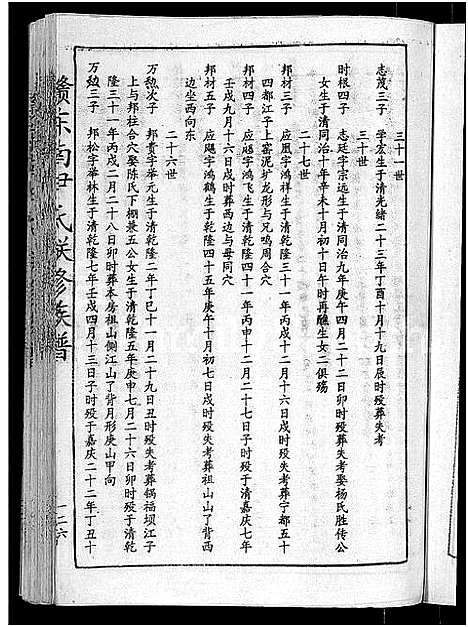 三十一世
志茂三子 学宏生于清光绪二十三年丁酉十月十九日辰时殁葬失考
三十世
时根四子 志廷字宗远生于清同治九年庚午四月二十二日卯时殁葬失考娶杨氏胜传公
女生于清同治十年辛未十月初十日午时再醮生女二俱殇
二十七世
邦材三子 应凰字鸿祥生于清乾隆三十一年丙戌十二月十六日戌时殁失考葬宁都五十
四都江子上窑泥圹龙形与兄鸣周合穴
邦材四子 应飏字鸿飞生于清乾隆四十一年丙申十二月二十七日子时殁于清嘉庆七年
壬戌九月十六日戌时葬西边与母同穴
邦材五子 应鹍字鸿鹤生于乾隆四十五年庚午十月初七日戌时殁失考葬祖山山了背西
边坐西向东
二十六世
万勉次子 邦贵字举元生于清乾隆二年丁巳十一月二十九日丑时殁失考葬锅福坝江子
上与邦柱合穴娶陈氏下棚兼五公女生于清乾隆五年庚申七月二十六日卯时殁于清乾
隆三十一年丙戌二月二十八日卯时葬本房祖山侧江山了背月形庚山甲向
万勉三子 邦松字举林生于清乾隆七年壬戌四月十三日子时殁于嘉庆二十二年丁丑十
赣东南尹氏联修族谱
一二六